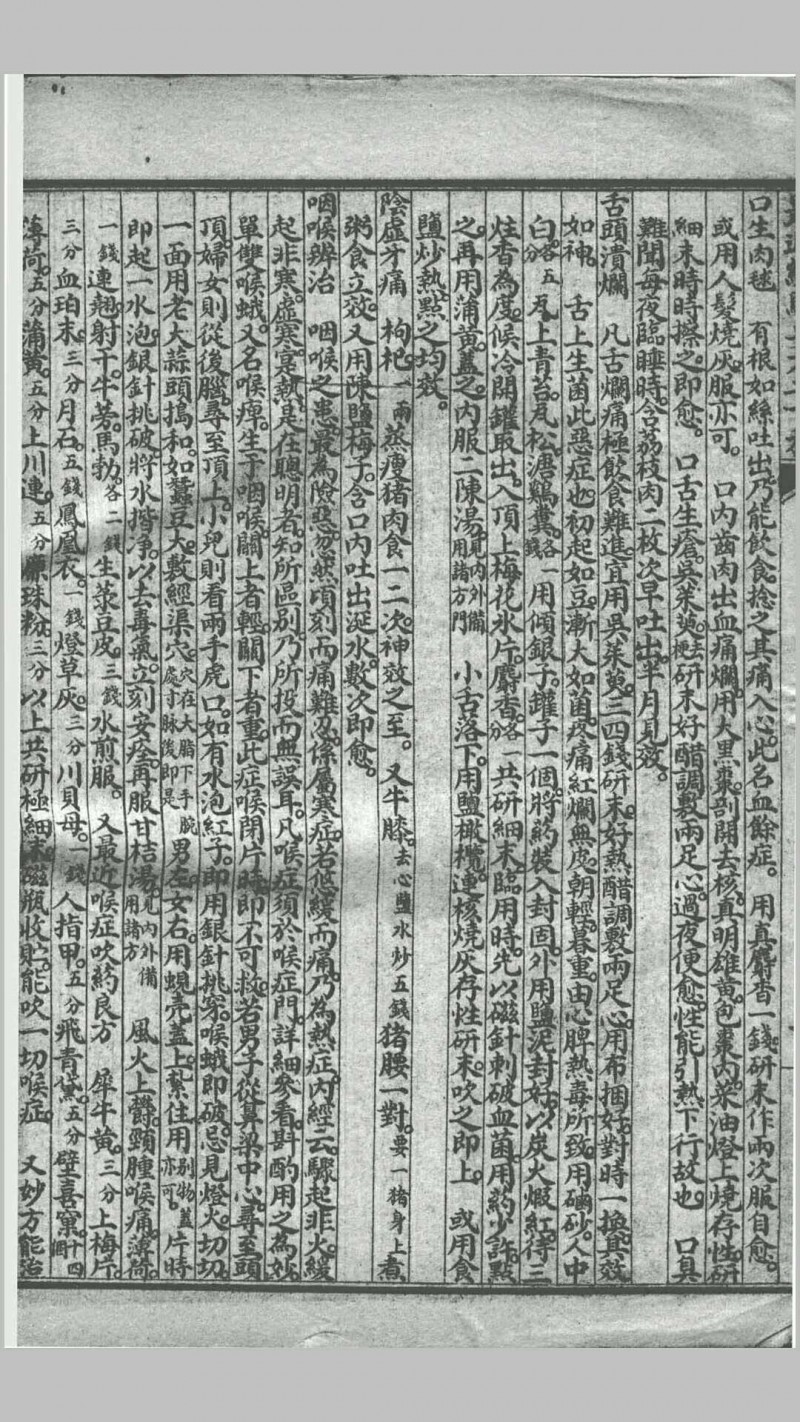 口生肉毬　有根如絲吐出乃能飲食捻之其痛入心。此名血餘症。用真麝香一錢。研末作兩次服自愈。
或用人髮燒灰。服亦可。　口內齒肉出血痛爛。用大黑棗。剖開去核。真明雄黃。包棗內。菜油燈上燒存性。研
細末時時擦之即愈。　口舌生瘡。吳茱萸去梗研末。好醋調敷兩足心。過夜便愈。性能引熱下行故也　口臭
難聞。每夜臨睡時。含荔枝肉二枚。次早吐出。半月見效。
舌頭潰爛　凡舌爛痛極。飲食難進。宜用吳茱萸三四錢。研末。好熱醋調敷兩足心。用布捆好。對時一換。其效
如神。　舌上生菌。此惡症也。初起如豆。漸大如菌。疼痛紅爛無皮。朝輕暮重。由心脾熱毒所致。用硇砂。人中
白。各五分瓦上青苔。瓦松。溏鷄糞。各一錢用傾銀子罐子一個。將葯裝入封固。外用鹽泥封好。以炭火煅紅。待三
炷香為度。候冷開罐取出。入頂上梅花氷片。麝香。各一分共研細末。臨用時。先以磁針刺破血菌。用葯少許點
之。再用蒲黃蓋之。內服二陳湯。見內外備用諸方門　小舌落下。用鹽橄欖。連核燒灰存性。研末。吹之即上。　或用食
鹽炒熱。點之均效。
陰虛牙痛　枸杞。一兩蒸瘦猪肉食一二次。神效之至。　又牛膝。去心鹽水炒五錢猪腰一對。要一猪身上煮
粥食立效。又用陳鹽梅子。含口內吐出涎水數次即愈。
咽喉辨治　咽喉之患。最為險惡。忽然頃刻而痛難忍。係屬寒症。若悠緩而痛。乃為熱症。內經云。驟起非火。緩
起非寒。虛寒寔熱。是在聰明者。知所區別。乃所投而無誤耳。凡喉症須於喉症門。詳細參看。斟酌用之為妙
單雙喉蛾。又名喉痺。生于咽喉。關上者輕。關下者重。此症喉閉片時。即不可救。若男子從鼻梁中心。尋至頭
頂。婦女則從後腦。尋至頂上。小兒則看兩手虎口。如有水泡紅子。即用銀針挑穿。喉蛾即破。忌見燈火。切切
一面用老大蒜頭搗和。如蠶豆大。敷經渠穴。穴在大腸下手腕處寸脉後即是男左女右。用蜆壳蓋上。紮住。用別物蓋亦可。片時
即起一水泡。銀針挑破。將水揩净。以去毒氣。立刻安痊。再服甘桔湯。見內外備用諸方　風火上鬱。頸腫喉痛。薄荷
一錢連翹。射干。牛蒡。馬勃。各二錢生菉豆皮。三錢水煎服。　又最近喉症吹葯良方　犀牛黃。三分上梅片。
三分血珀末。三分月石。五錢鳳凰衣。一錢燈草灰。三分川貝母。一錢人指甲。五分飛青黛。五分壁喜窠。十四個
薄荷。五分蒲黃。五分上川連。五分濂珠粉。三分以上共研極細末。磁瓶收貯。能吹一切喉症　又妙方能治